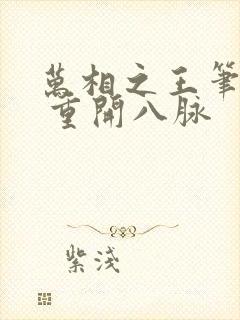 萬相之王筆
重開八脉
紫淺